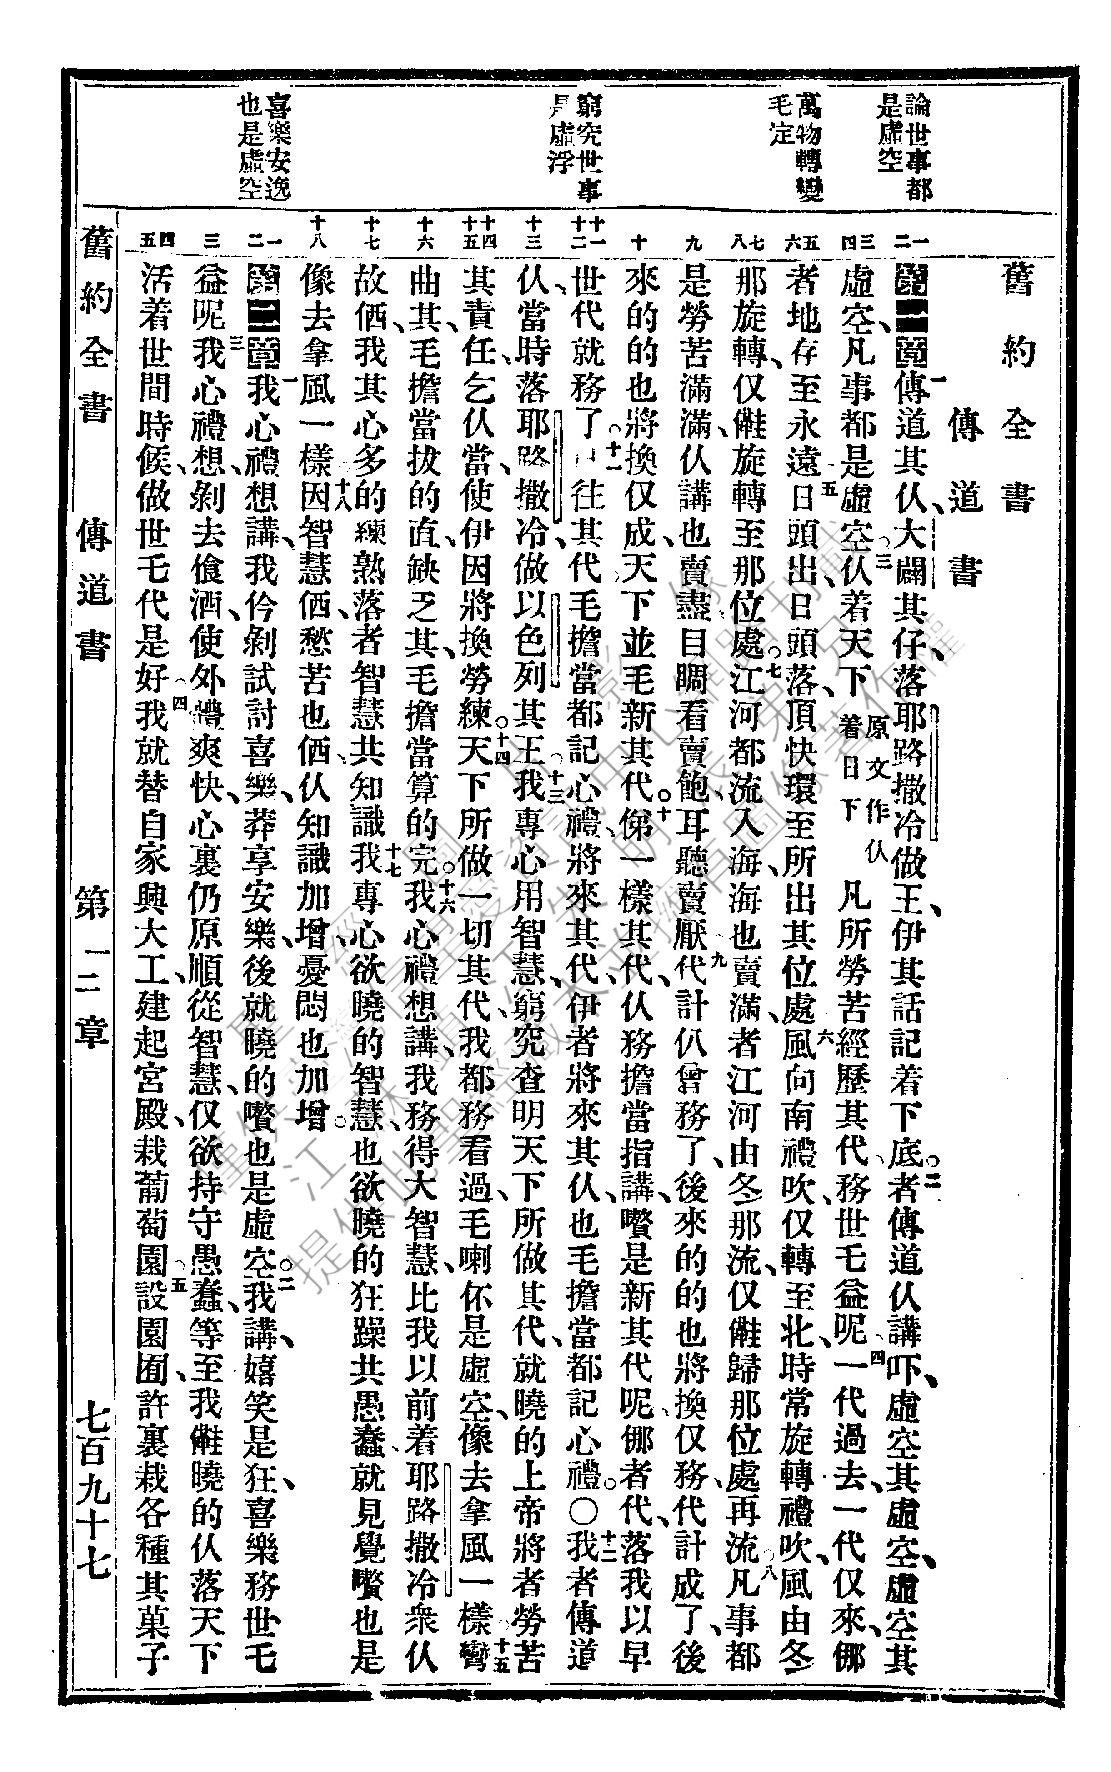 舊約全書
傳道書
論世事都是虛空
萬物轉變毛定
窮究世事是虛浮
喜樂安逸也是虛空
一二
三四
五六
七八
九
十
十一十二
十三
十四十五
十六
十七
十八
一二
三
四五
第一章一傳道其仈大闢其仔落耶路撒冷做王伊其話記着下底二者傳道仈講吓虛空其虛空虛空其
虛空凡事都是虛空三仈着天下原文作仈着日下凡所勞苦經歷其代務世乇益呢四一代過去一代仅來㑚
者地存至永遠五日頭出日頭落頂快環至所出其位處六風向南禮吹仅轉至北時常旋轉禮吹風由冬
那旋轉仅旋轉至那位處七江河都流入海海也賣滿者江河由冬那流仅歸那位處再流八凡事都
是勞苦滿滿仈講也賣盡目睭看賣飽耳聽賣厭九代計仈曾務了後來的的也將換仅務代計成了後
來的的也將換仅成天下並毛新其代十㑚一樣其代仈務擔當指講嚽是新其代呢㑚者代落我以早
世代就務了十一往其代毛擔當都記心禮將來其代伊者將來其仈也毛擔當都記心禮〇十二我者傳道
仈當時落耶路撒冷做以色列其王十三我專心用智慧窮究查明天下所做其代就曉的上帝將者勞苦
其責任乞仈當使伊因將換勞練十四天下所做一切其代我都務看過毛喇伓是虛空像去拿風一樣十五彎
曲其毛擔當拔的直缺乏其毛擔當算的完十六我心禮想講我務得大智慧比我以前着耶路撒冷衆仈
故㑻我其心多的練熟落者智慧共知識十七我專心欲曉的智慧也欲曉的狂躁共愚蠢就見覺嚽也是
像去拿風一樣十八因智慧㑻愁苦也㑻仈知識加增憂悶也加增
第二章一我心禮想講我仱剝試討喜樂莽享安樂後就曉的嚽也是虛空二我講嬉笑是狂喜樂務世乇
益呢三我心禮想剝去飧酒使外體爽快心裏仍原順從智慧仅欲持守愚蠢等至我曉的仈落天下
活着世間時候做世乇代是好四我就替自家興大工建起宮殿栽葡萄園五設園囿許裏栽各種其菓子
舊約全書 傳道書 第一二章 七百九十七